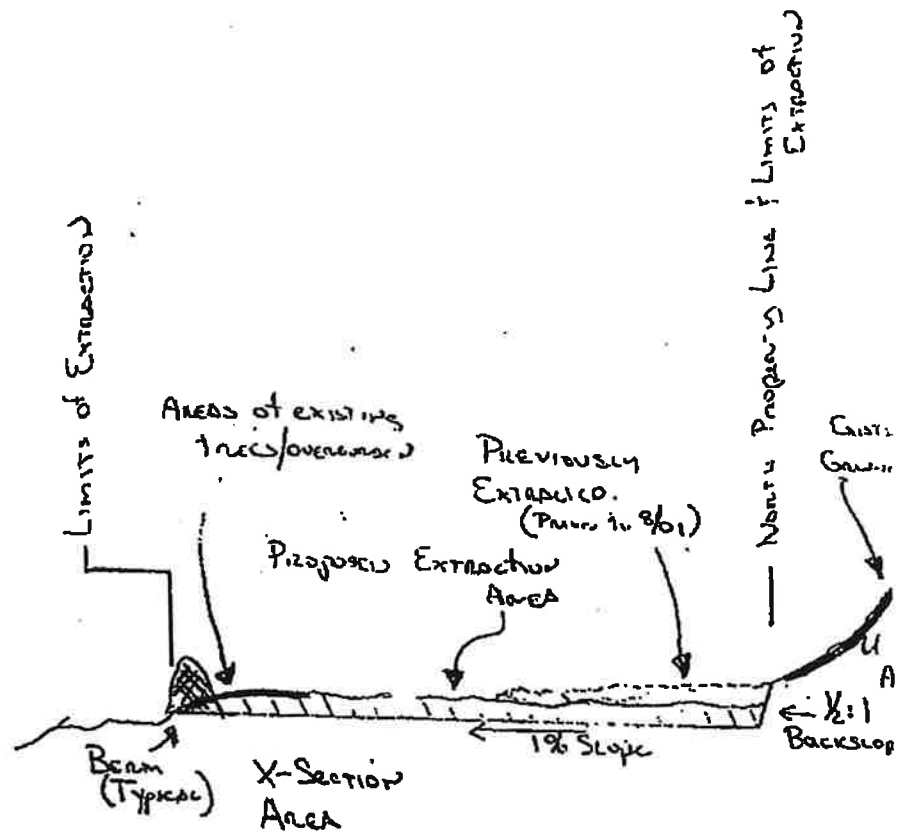 Limits of Extraction
Areas of existing
trees/overburden
Previously
Extracted.
(Prior to 8/01)
Proposed Extraction
Area
North Property Line & Limits of
Extraction
Existi
A
½:1
Backslop
1% Slope
Berm
(Typical)
X-Section
Area